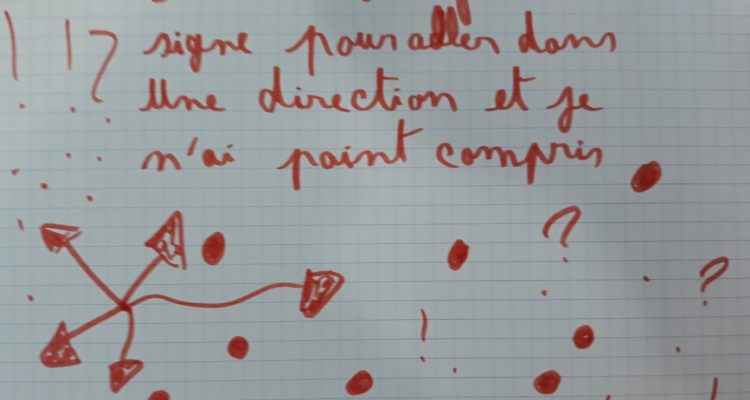 ! ! ? signe pour aller dans
une direction et je
n'ai point compris
?
?
!